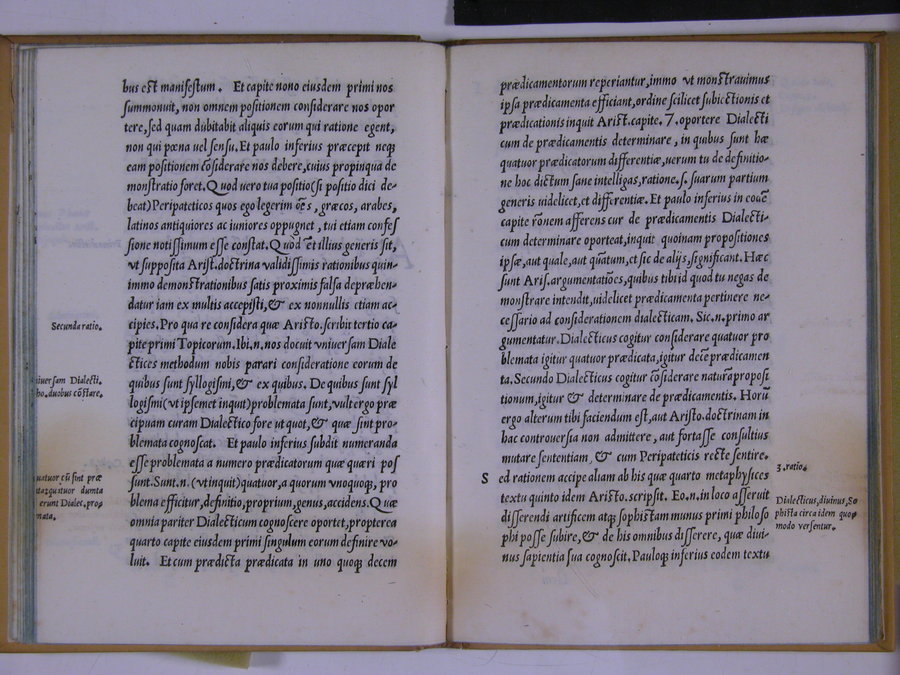 bus est manifestum. Et capite nono eiusdem primi nos
summonuit, non omnem positionem considerare nos opor
tere, sed quam dubitabit aliquis eorum qui ratione egent,
non qui pœna uel sensu. Et paulo inferius præcepit neq;
eam positionem cōsiderare nos debere, cuius propinqua de
monstratio foret. Quod uero tua positio (si positio dici de-
beat) Peripateticos quos ego legerim oēs, græcos, arabes,
latinos antiquiores ac iuniores oppugnet, tui etiam confes
sione notissimum esse constat. Quod et illius generis sit,
vt supposita Arist. doctrina validissimis rationibus quin-
immo demonstrationibus satis proximis falsa depræhen-
datur iam ex multis accepisti, & ex nonnullis etiam ac-
cipies. Pro qua re considera quæ Aristo. scribit tertio ca-
pite primi Topicorum. Ibi.n. nos docuit vniuersam Diale
cticès methodum nobis parari consideratione eorum de
quibus sunt syllogismi, & ex quibus. De quibus sunt syl
logismi (vt ipsemet inquit) problemata sunt, vult ergo præ
cipuam curam Dialectico fore ut quot, & quæ sint pro-
blemata cognoscat. Et paulo inferius subdit numeranda
esse problemata a numero prædicatorum quæ quæri pos
sunt. Sunt.n. (vt inquit) quatuor, a quorum vnoquoq; pro
blema efficitur, definitio, proprium, genus, accidens. Quæ
omnia pariter Dialecticum cognoscere oportet, propterea
quarto capite eiusdem primi singulum eorum definire vo-
luit. Et cum prædicta prædicata in uno quoq; decem
Secunda ratio.
niuersam Dialecti.
ho. duobus cōstare.
uatuor cū sint præ
quatuor dumta
erunt Dialec. prop
mata.
prædicamentorum reperiantur, immo vt monstrauimus
ipsa prædicamenta efficiant, ordine scilicet subiectionis et
prædicationis inquit Arist. capite, 7. oportere Dialecti
cum de prædicamentis determinare, in quibus sunt hæ
quatuor prædicatorum differentiæ, uerum tu de definitio-
ne hoc dictum sane intelligas, ratione.s. suarum partium
generis uidelicet, et differentiæ. Et paulo inferius in eodē
capite rōnem afferens cur de prædicamentis Dialecti-
cum determinare oporteat, inquit quoinam propositiones
ipsæ, aut quale, aut quātum, et sic de alijs, significant. Hæc
sunt Aris. argumentatiōes, quibus tibi id quod tu negas de
monstrare intendit, uidelicet prædicamenta pertinere ne-
cessario ad considerationem dialecticam. Sic.n. primo ar
gumentatur. Dialecticus cogitur considerare quatuor pro
blemata igitur quatuor prædicata, igitur decē prædicamen
ta. Secundo Dialecticus cogitur cōsiderare naturā proposi
tionum, igitur & determinare de prædicamentis. Horū
ergo alterum tibi faciendum est, aut Aristo. doctrinam in
hac controuersia non admittere, aut fortasse consultius
mutare sententiam, & cum Peripateticis recte sentire.
S ed rationem accipe aliam ab his quæ quarto metaphysices
textu quinto idem Aristo. scripsit. Eo.n. in loco asseruit
disserendi artificem atq; sophistam munus primi philoso
phi posse subire, & de his omnibus disserere, quæ diui-
nus sapientia sua cognoscit. Pauloq; inferius eodem textu
3. ratio.
Dialecticus, diuinus, So
phista circa idem quop
modo versentur.